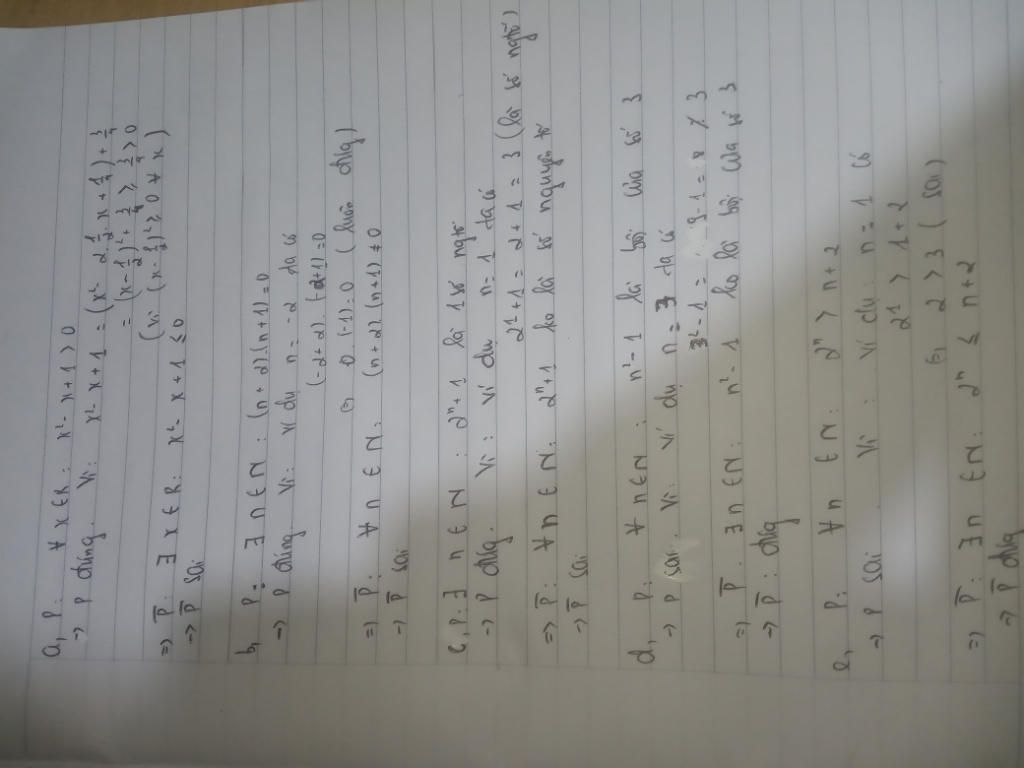 a, P: ∀ x ∈ R: x² - x + 1 > 0
→ P đúng. Vì: x² - x + 1 = (x² - 2 1/2 x + 1/4) + 3/4
= (x - 1/2)² + 3/4 ≥ 3/4 > 0
(vì (x - 1/2)² ≥ 0 ∀ x)
=> P̅: ∃ x ∈ R: x² - x + 1 ≤ 0
→ P̅ sai
b, P: ∃ n ∈ N: (n + 2)(n + 1) = 0
→ P đúng. Vì: ví dụ n = -2 ta có
(-2 + 2).(-2 + 1) = 0
(=) 0.(-1) = 0 (luôn đug)
=> P̅: ∀ n ∈ N: (n + 2)(n + 1) ≠ 0
→ P̅ sai
c, P: ∃ n ∈ N: 2ⁿ + 1 là 1 số ngtố
→ P đug. Vì: ví dụ n = 1 ta có
2¹ + 1 = 2 + 1 = 3 (là số ngtố)
=> P̅: ∀ n ∈ N: 2ⁿ + 1 ko là số nguyên tố
→ P̅ sai
d, P: ∀ n ∈ N: n² - 1 là bội của số 3
→ P sai. Vì: ví dụ n = 3 ta có
3² - 1 = 9 - 1 = 8 ⋮̸ 3
=> P̅: ∃ n ∈ N: n² - 1 ko là bội của số 3
→ P̅: đug
e, P: ∀ n ∈ N: 2ⁿ > n + 2
→ P sai Vì: ví dụ: n = 1 có
2¹ > 1 + 2
(=) 2 > 3 (sai)
=> P̅: ∃ n ∈ N: 2ⁿ ≤ n + 2
→ P̅ đug